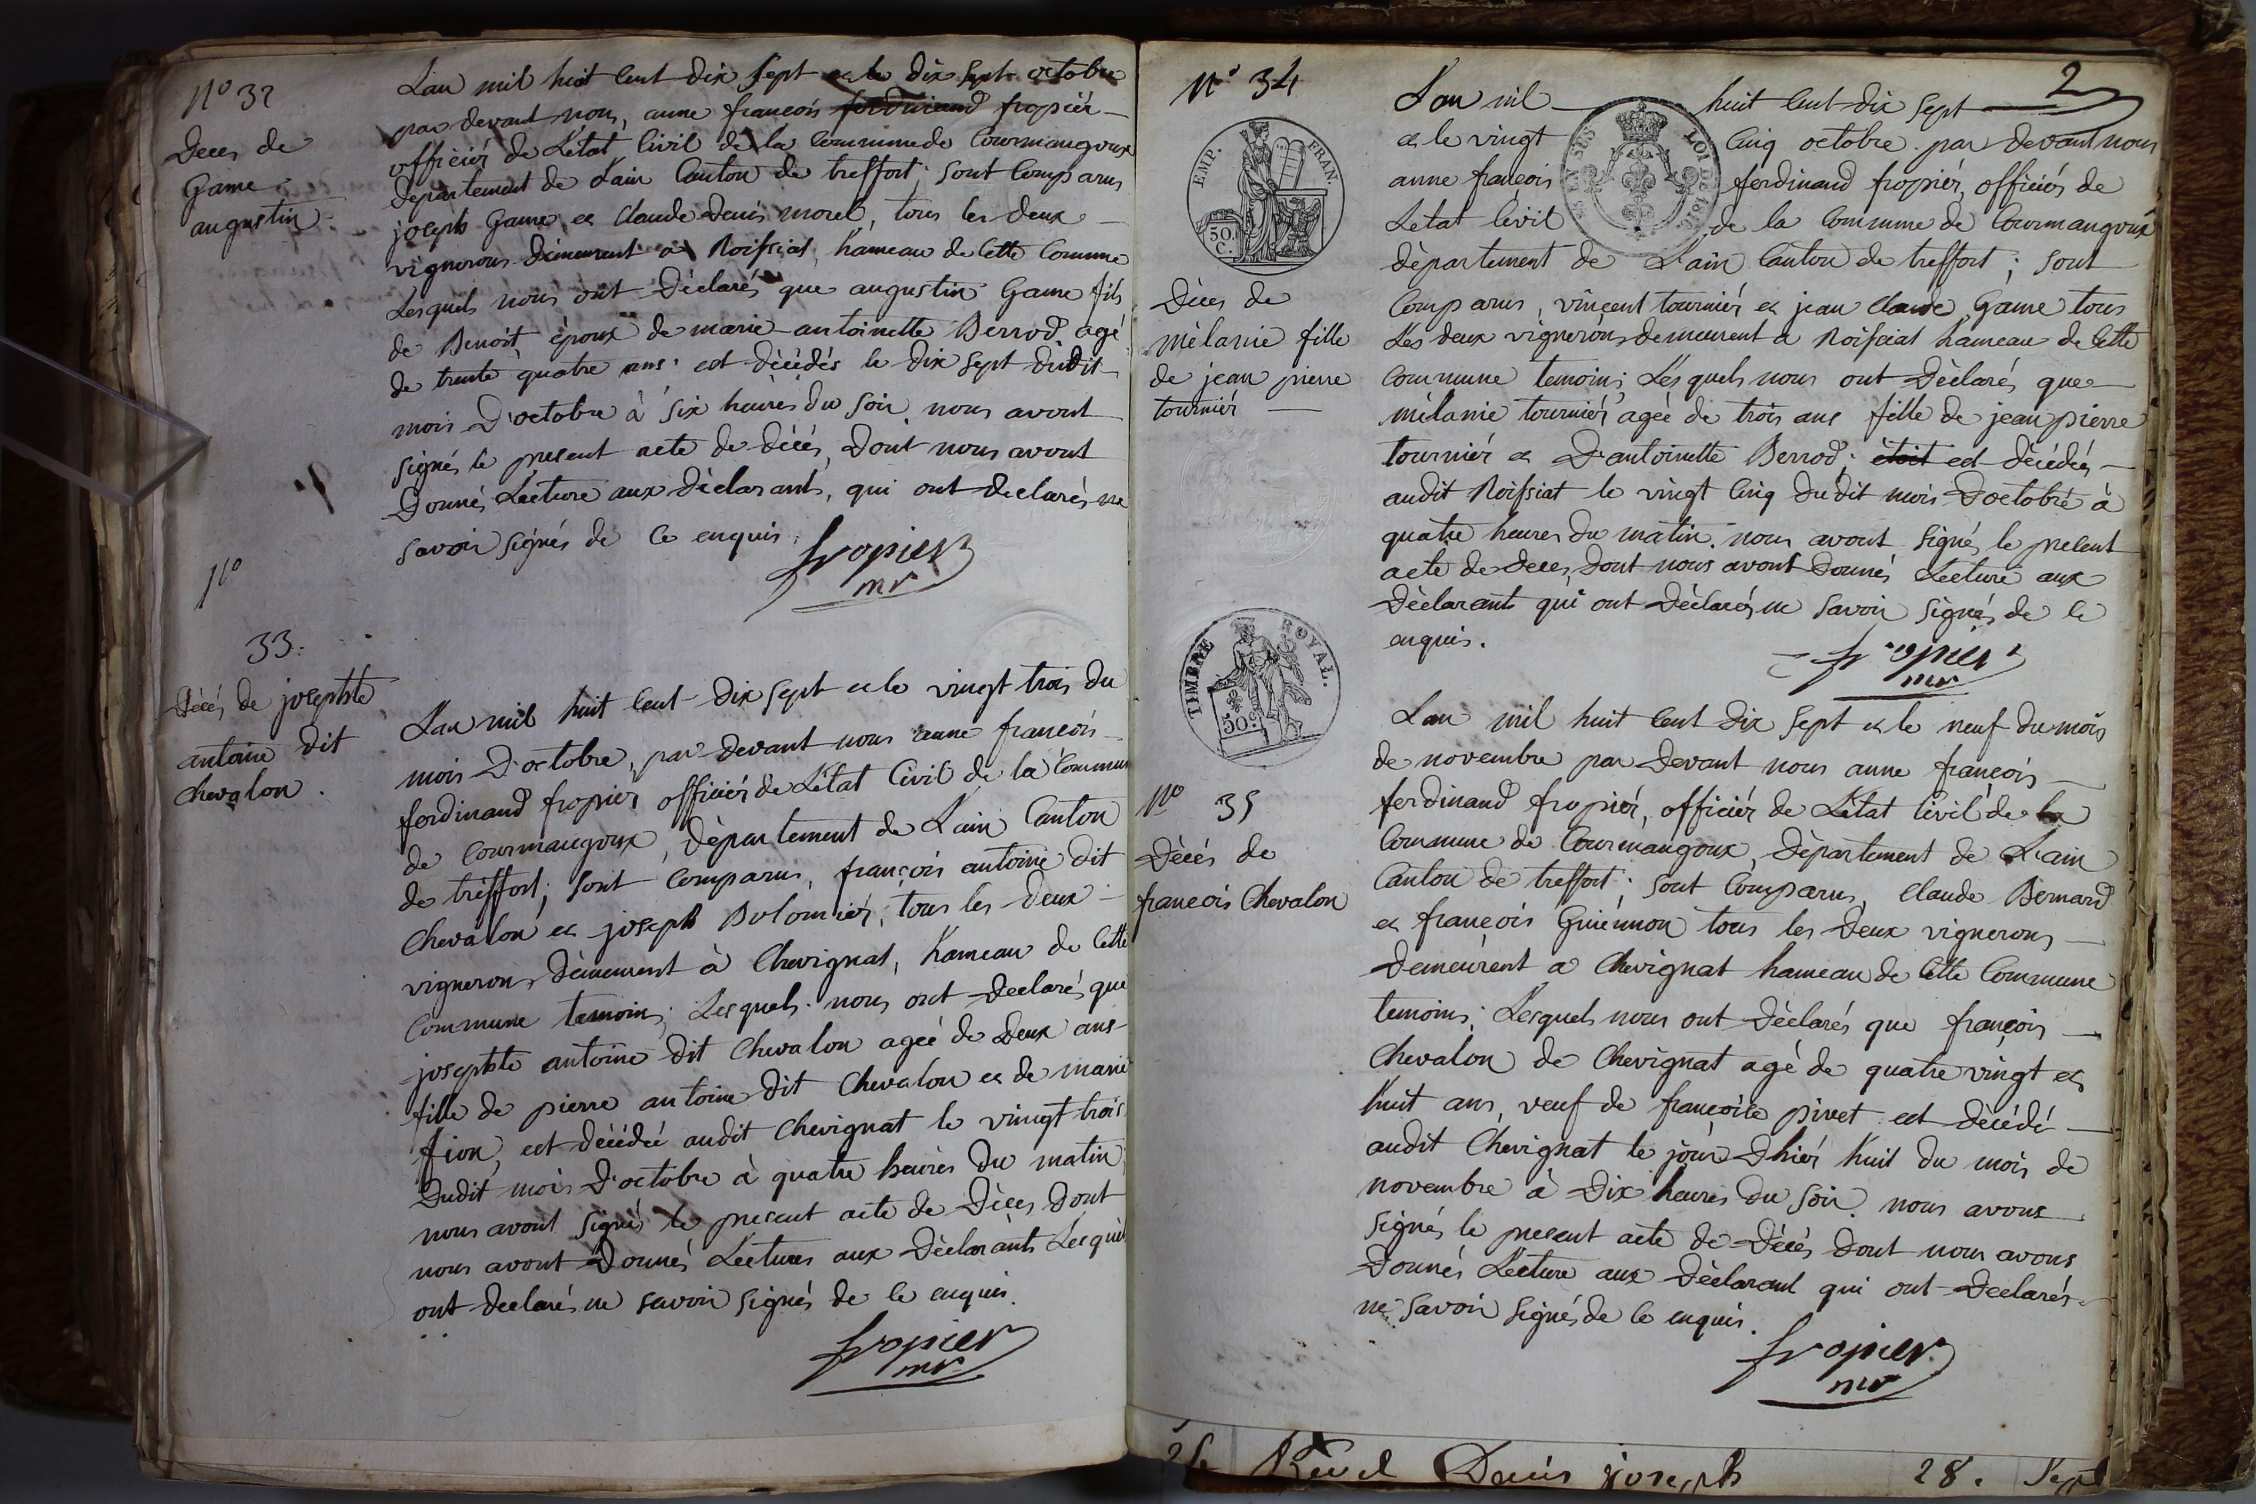 N° 32
Deces de
Game
augustin
L'an mil huit cent dix sept et le dix sept octobre
par devant nous, anne françois ferdinand fropier
officiér de L'état Civil de la Commune de Courmangoux
departement de L'ain Canton de treffort; sont Comparus
joseph Game et Claude Denis morel, tous les deux
vignerons demeurent a Roissiat, hameau de Cette Commune
Lesquels nous ont Déclarés que augustin Game fils
de Benoit époux de marie antoinette Berrod agé
de trente quatre ans est décédés le dix sept dudit
mois D'octobre à six heures du soir nous avont
signés le present acte de décés, Dont nous avont
Donnés Lecture aux Déclarants, qui ont declarés ne
savoir signés de Ce enquis
fropier
mr
N°
33.
Décés de josephte
antoine dit
chevalon.
L'an mil huit Cent dix sept et le vingt trois du
mois D'octobre, par devant nous anne françois
ferdinand fropiér officiér de L'état Civil de la Commune
de Courmangoux, Département de L'ain Canton
de tréffort; sont Comparus, françois antoine dit
Chevalon et joseph Bolomiér, tous les deux
vignerons Demeurent à Chevignat, hameau de Cette
Commune temoins; Lesquels nous ont Declarés que
josephte antoine dit Chevalon ageé de Deux ans
fille de pierre antoine dit Chevalon et de marie
fion, est décédée audit Chevignat le vingt trois
Dudit mois D'octobre à quatre heures du matin
nous avont signés le present acte de Déces Dont
nous avont Donnés Lectures aux Déclarants Lesquels
ont declarés ne savoir signés de Ce enquis.
fropier
mr
2
N° 34
EMP. FRAN.
50.
C.
Déces de
mélanie fille
de jean pierre
tourniér
L'an mil huit Cent dix sept
et le vingt Cinq octobre par devant nous
anne françois ferdinand fropiér, officiér de
L'etat Civil de la Commune de Courmangoux
département de L'ain Canton de treffort; sont
Comparus, vinçent tourniér et jean Claude Game tous
Les deux vignerons demeurent a Roissiat hameau de Cette
Commune temoins; Lesquels nous ont Déclarés que
mélanie tourniér ageé de trois ans fille de jean pierre
tourniér et D'antoinette Berrod; étoit est décédés
audit Roissiat le vingt Cinq dudit mois D'octobre à
quatre heures du matin. nous avont signés le present
acte de Deces, dont nous avont Donnés Lecture aux
Déclarants qui ont Déclarés ne savoir signés de Ce
enquis.
fropier
mr
TIMBRE ROYAL.
50.
N° 35
Décés de
françois Chevalon
L'an mil huit Cent dix sept et le neuf du mois
de novembre par Devant nous anne françois
ferdinand fropiér, officiér de L'état Civil de la
Commune de Courmangoux, Département de L'ain
Canton de treffort; sont Comparus, Claude Bernard
et françois Guiénnon tous les Deux vignerons
Demeurent a Chevignat hameau de Cette Commune
temoins; Lesquels nous ont Déclarés que françois
Chevalon de Chevignat agé de quatre vingt et
huit ans, veuf de françoise pivet est décédé
audit Chevignat le jour D'hiér huit du mois de
novembre à Dix heures du soir. nous avons
signés le present acte de Décés Dont nous avons
Donnés Lecture aux Déclarant qui ont Declarés
ne savoir signés de Ce enquis.
fropier
mr
Revel Denis joseph 28.